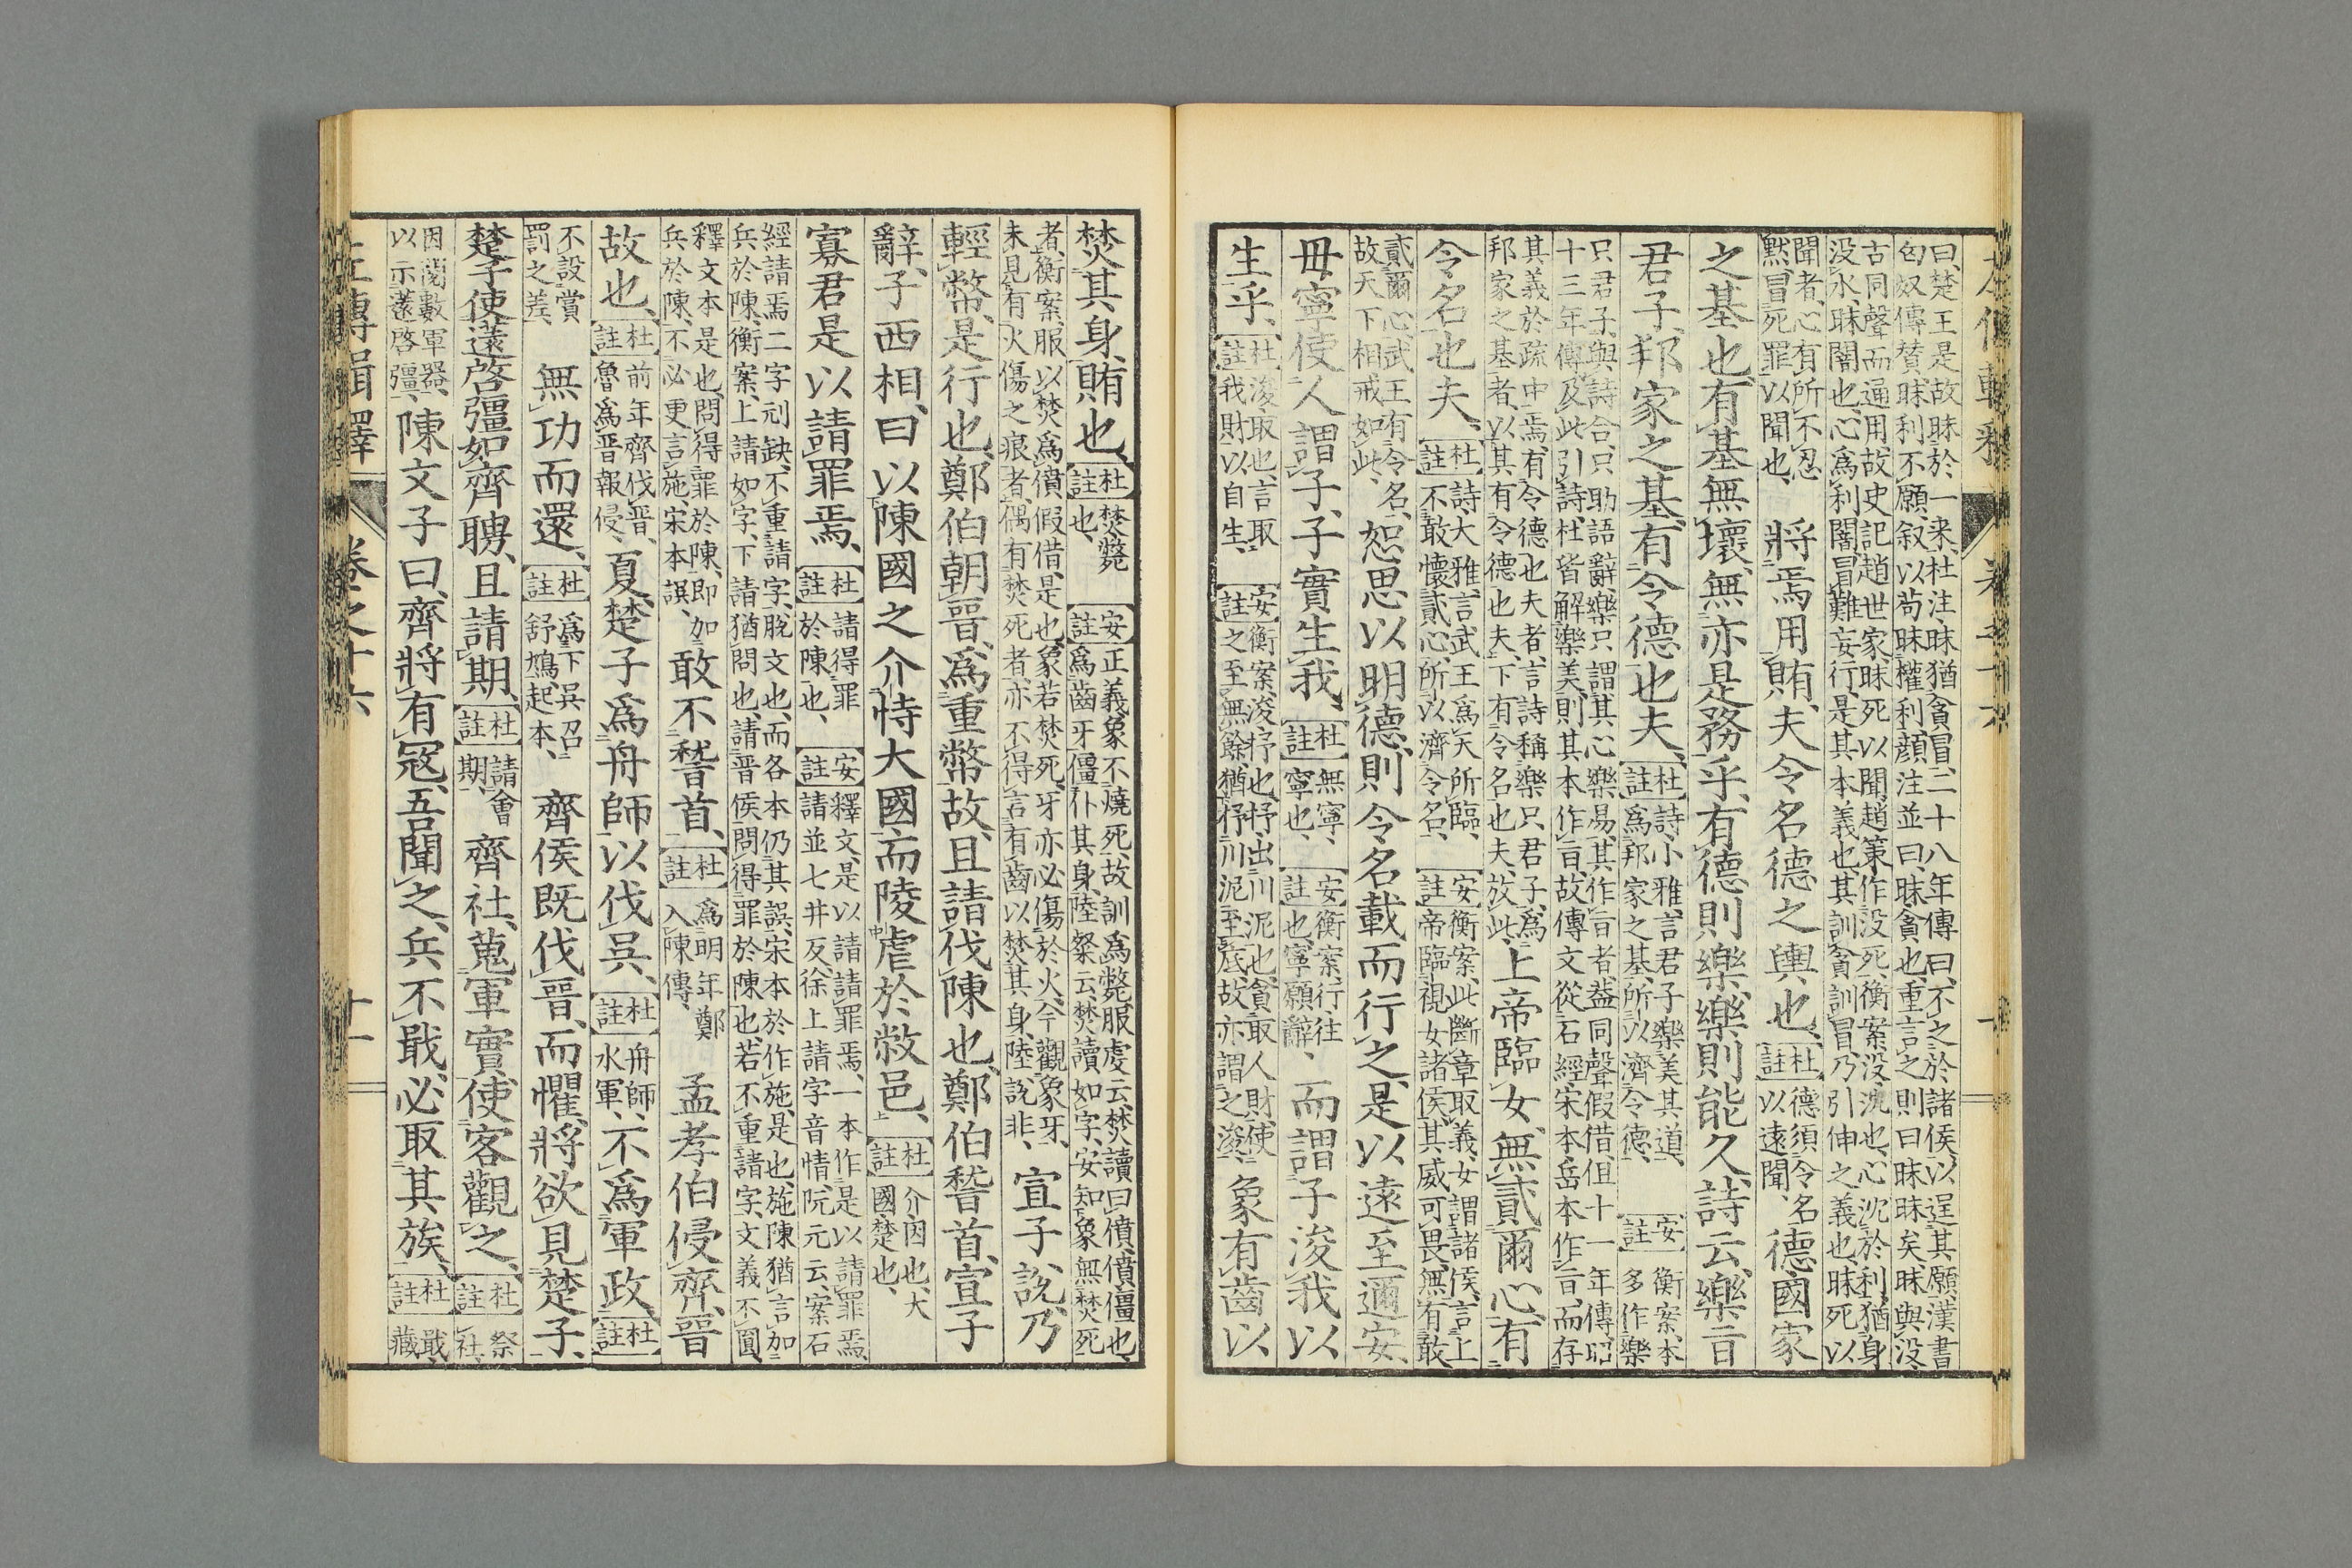 曰、楚王是故昧於一来、杜注、昧猶貪冒、二十八年傳曰、不之於諸侯、以逞其願、漢書
匈奴傳贊、昧利不顧、叙以苟昧權利、顔注並曰、昧貪也、重言之、則曰昧昧矣、昧與没、
古同聲而通用、故史記趙世家、昧死以聞、趙策作没死、衡案、没、沈也、心沈於利、猶身
没水、昧闇也、心爲利闇、冒難妄行、是其本義也、其訓貪訓冒、乃引伸之義也、昧死以
聞者、心有所不忍
黙、冒死罪以聞也、
將焉用賄、夫令名德之輿也、
杜註
德須令名
以遠聞、
德國家
之基也、有基無壞、無亦是務乎、有德則樂、樂則能久、詩云、樂旨
君子、邦家之基、有令德也夫、
杜註
詩小雅、言君子樂美其道、
爲邦家之基、所以濟令德、
安註
衡案、本
多作樂
只君子、與詩合、只助語辭、樂只謂其心樂易、其作旨者、蓋同聲假借、但十一年傳、昭
十三年傳、及此引詩、杜皆解樂美、則其本作旨、故傳文從石經宋本岳本作旨、而存
其義於疏中焉、有令德也夫者、言詩稱樂只君子、爲
邦家之基者、以其有令德也夫、下有令名也夫、放此、
上帝臨女、無貳爾心、有
令名也夫、
杜註
詩大雅、言武王爲天所臨、
不敢懷貳心、所以濟令名、
安註
衡案、此斷章取義、女謂諸侯、言上
帝臨視女諸侯、其威可畏、無有敢
貳爾心、武王有令名、
故天下相戒如此、
恕思以明德、則令名載而行之、是以遠至邇安、
毋寧使人謂子、子實生我、
杜註
無寧、
寧也、
安註
衡案、行往
也、寧願辭、
而謂子浚我以
生乎、
杜註
浚、取也、言取
我財以自生、
安註
衡案、浚抒也、抒、出川泥也、貪取人財、使
之至無餘、猶抒川泥至底、故亦謂之浚、
象有齒以
焚其身、賄也、
杜註
焚斃
也、
安註
正義、象不燒死、故訓爲斃、服虔云、焚讀曰僨、僨僵也、
爲齒牙僵仆其身、陸粲云、焚讀如字、安知象無焚死
者、衡案、服以焚爲僨假借、是也、象若焚死、牙亦必傷於火、今觀象牙、
未見有火傷之痕者、偶有焚死者、亦不得言有齒以焚其身、陸說非、
宣子說、乃
輕幣、是行也、鄭伯朝晉、爲重幣故、且請伐陳也、鄭伯稽首、宣子
辭、子西相、曰、以陳國之介恃大國、而陵虐於敝邑、
杜註
介、因也、大
國、楚也、
寡君是以請罪焉、
杜註
請得罪
於陳也、
安註
釋文、是以請請罪焉、一本作是以請罪焉、
請並七井反、徐上請字音情、阮元云、案石
經請焉二字刓缺、不重請字、脱文也、而各本仍其誤、宋本於作施、是也、施陳猶言加
兵於陳、衡案、上請如字、下請猶問也、請晉侯問得罪於陳也、若不重請字、文義不圓、
釋文本是也、問得罪於陳、即加
兵於陳、不必更言施、宋本誤、
敢不稽首、
杜註
爲明年鄭
入陳傳、
孟孝伯侵齊、晉
故也、
杜註
前年齊伐晉、
魯爲晉報侵、
夏、楚子爲舟師以伐吳、
杜註
舟師、
水軍、
不爲軍政、
杜註
不設賞
罰之差、
無功而還、
杜註
爲下吳召
舒鳩起本、
齊侯既伐晉、而懼、將欲見楚子、
楚子使薳啓彊如齊聘、且請期、
杜註
請會
期、
齊社、蒐軍實、使客觀之、
杜註
祭
社、
因閲數軍器、
以示薳啓彊、
陳文子曰、齊將有寇、吾聞之、兵不戢、必取其族、
杜註
戢、
藏
左傳輯釋
卷之十六
十一